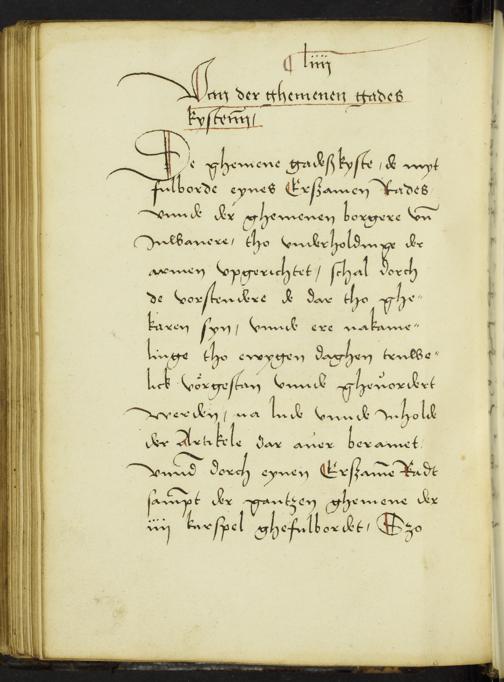 liiij
Van der ghemenen gades
kystenn /
De ghemene gadeßkyste / de myt
fulborde eynes Erßamen Rades
vnnde der ghemenen borgere vn̄
Inwanere / tho vnderholdinge der
armen vpgerichtet / schal dorch
de vorstendere de dar tho ghe-
karen syn / vnnde ere nakame-
linge tho ewygen daghen truwe-
lick vörgestan vnnde gheuordert
werden / na lude vnnde Inholde
der Artikele dar auer beramet
vnnd dorch eynen Erßame Radt
sampt der gantzen ghemene der
iiij karspel ghefulbordet / Szo